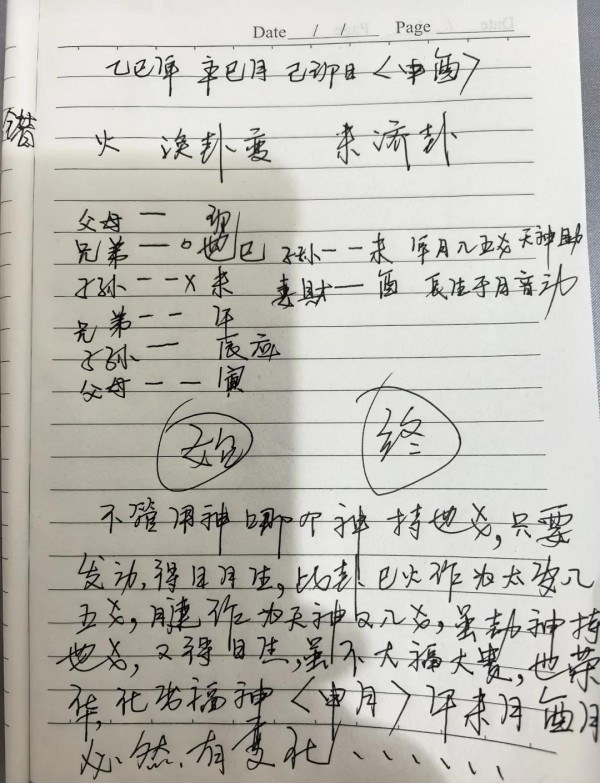 Date / / Page
乙巳年 辛巳月 己卯日〈申酉〉
错
火 涣卦变 未济卦
父母 一 卯
兄弟 一 o 世 巳 子孙 一 一 未 年月入五爻 天神助
子孙 一 一 X 未 妻财 一 酉 辰生于月音动
兄弟 一 一 午
子孙 一 辰应
父母 一 一 寅
始 终
不管用神哪个神持世爻,只要
发动,得日月生,此卦巳火作为太岁入
五爻,月建作为天神又入爻,虽劫神持
世爻,又得日生,虽不大福大贵,也荣
华,化出福神〈申月〉午未月酉月
必然有变化......